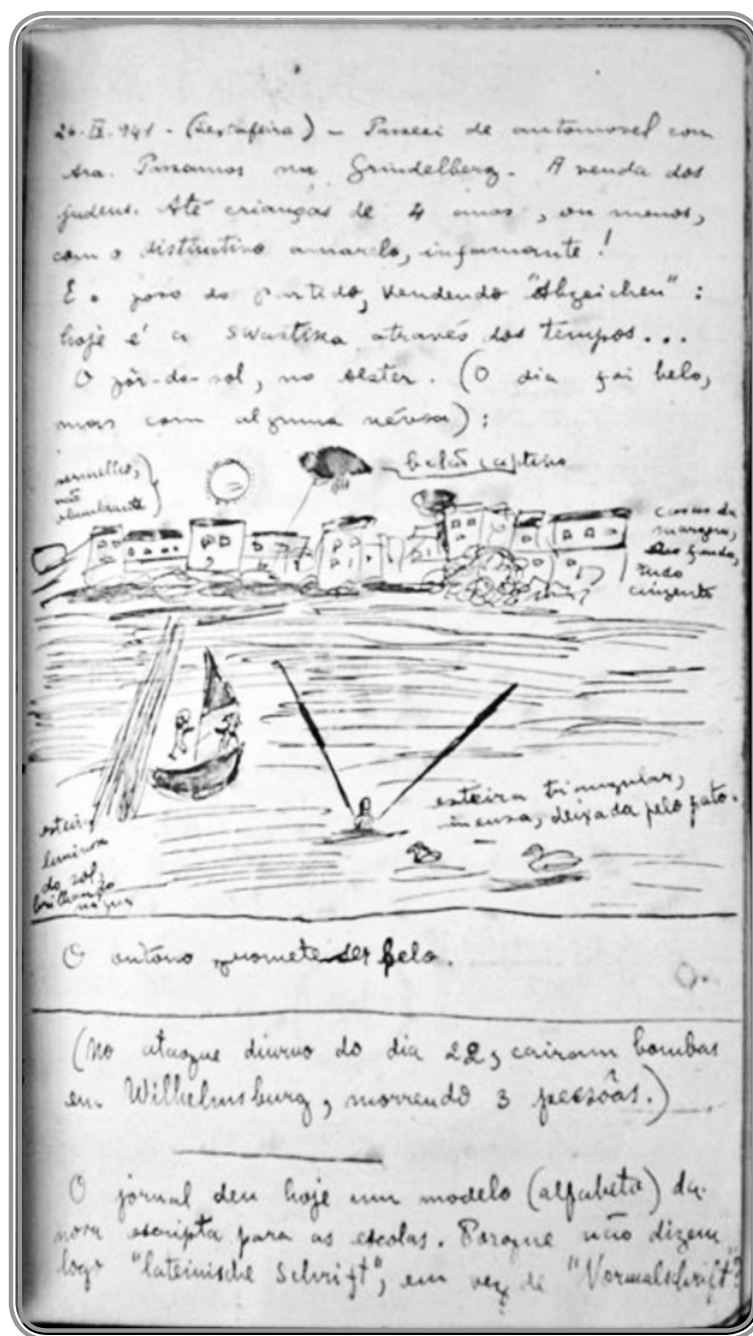 26-IX-941 - (Sextafeira) - Passei de automovel com
Ara. Passamos na Grindelberg. A venda dos
judeus. Até crianças de 4 anos, ou menos,
com o distinctivo amarelo, infamante!
E o povo do partido, vendendo "Abzeichen":
hoje é a swastika através dos tempos...
O pôr-do-sol, no Alster. (O dia foi belo,
mas com alguma névoa):
vermelho,
não
deslumbrante
balão captivo
casas da
margem,
ao fundo,
tudo
cinzento
esteira triangular,
imensa, deixada pelo pato.
esteira
luminosa
do sol,
brilhando
na água
O outono promete ser belo.
(No ataque diurno do dia 22, cairam bombas
em Wilhelmsburg, morrendo 3 pessôas.)
O jornal deu hoje um modelo (alfabeto) da
nova escripta para as escolas. Porque não dizem
logo "lateinische Schrift", em vez de "Normalschrift"?